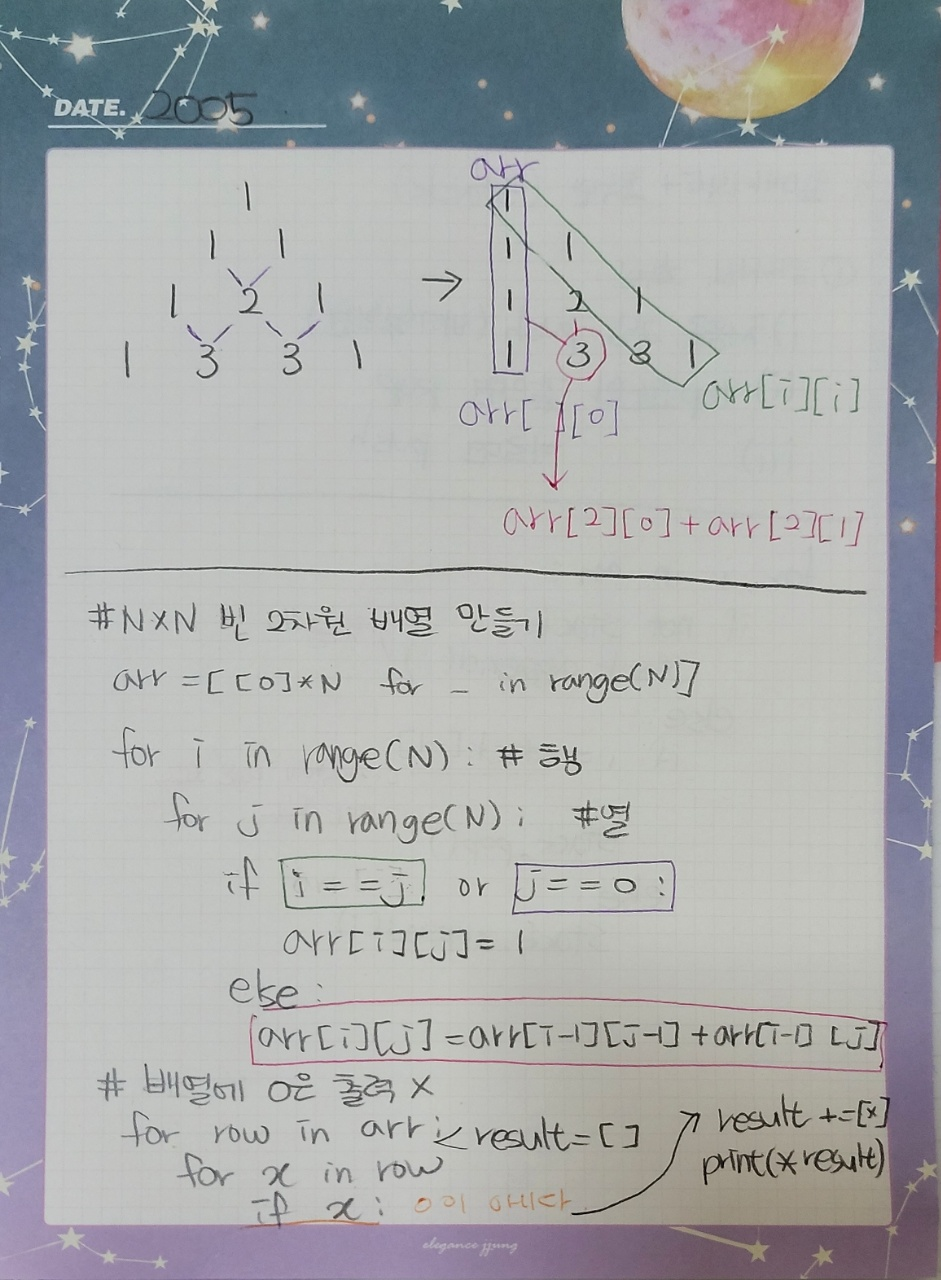 DATE. 2005
arr
1
1 1
1 2 1
1 3 3 1
→
1
1 1
1 2 1
1 3 3 1
arr[i][i]
arr[ ][0]
arr[2][0] + arr[2][1]
#N×N 빈 2차원 배열 만들기
arr = [[0]*N for _ in range(N)]
for i in range(N): # 행
for j in range(N): #열
if i == j or j == 0 :
arr[i][j] = 1
else :
arr[i][j] = arr[i-1][j-1] + arr[i-1][j]
# 배열에 0은 출력 X
for row in arr: < result = []
for x in row
if x : 0이 아니다
result += [x]
print(*result)
elegance jjung